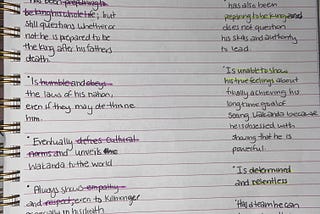 has been preparing to
be king his whole life, but
still questions whether or
not he is prepared to be
the king after his fathers
death.
"Is humble and obeys
the laws of his nation,
even if they may dethrone
him.
"Eventually defies cultural
norms and unveils the
Wakanda to the world
"Always shows empathy
and respect, even to Killmonger
especially in his death
has also been
preparing to be king and
does not question
his skills and authority
to lead.
"Is unable to show
his true feelings about
finally achieving his
long time goal of
seeing Wakanda because
he is obsessed with
showing that he is
powerful.
"Is determined
and relentless
"Has a team he can